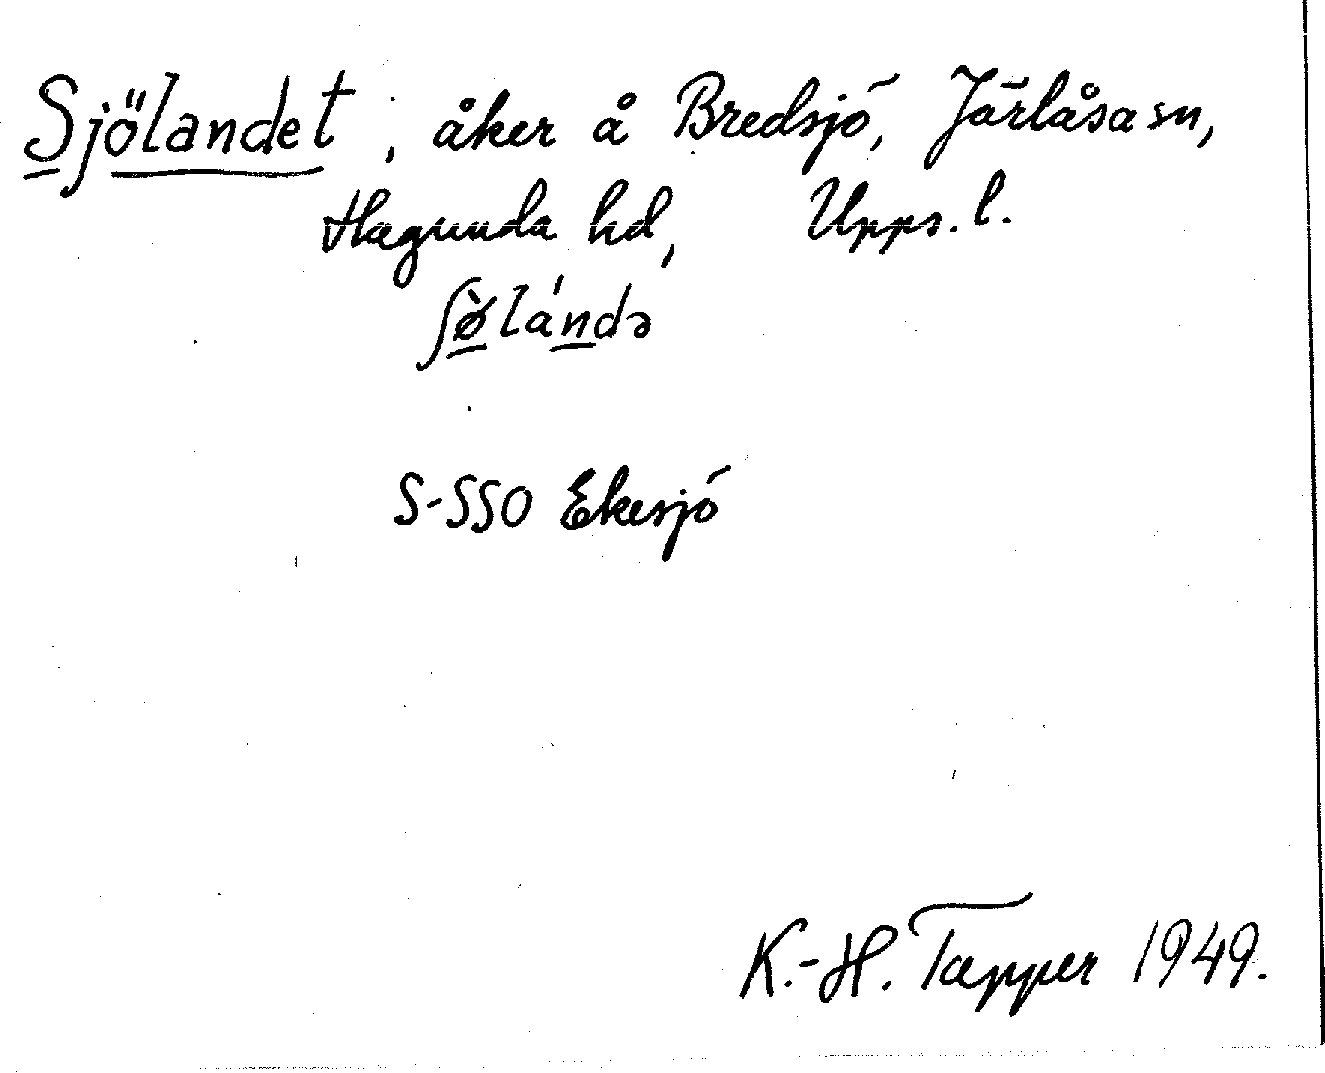 Sjölandet, åker å Bredsjö, Järlåsa sn,
Hagunda hd, Upps. l.
ʃø̀lándə
S-SSO Ekesjö
K.-H. Tapper 1949.